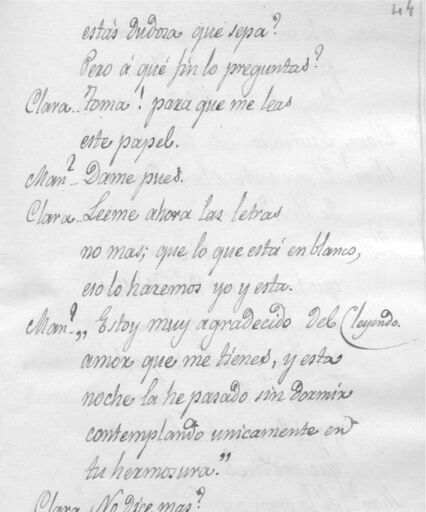 44
estás dudosa que sepa?
Pero á qué fin lo preguntas?
Clara.. Toma! para que me leas
este papel.
Man?.. Dame pues.
Clara.. Leeme ahora las letras
no mas; que lo que está en blanco,
eso lo haremos yo y esta.
Man?.. „ Estoy muy agradecido del (leyendo.
amor que me tienes, y esta
noche la he pasado sin dormir
contemplando unicamente en
tu hermosura.”
Clara No dice mas?